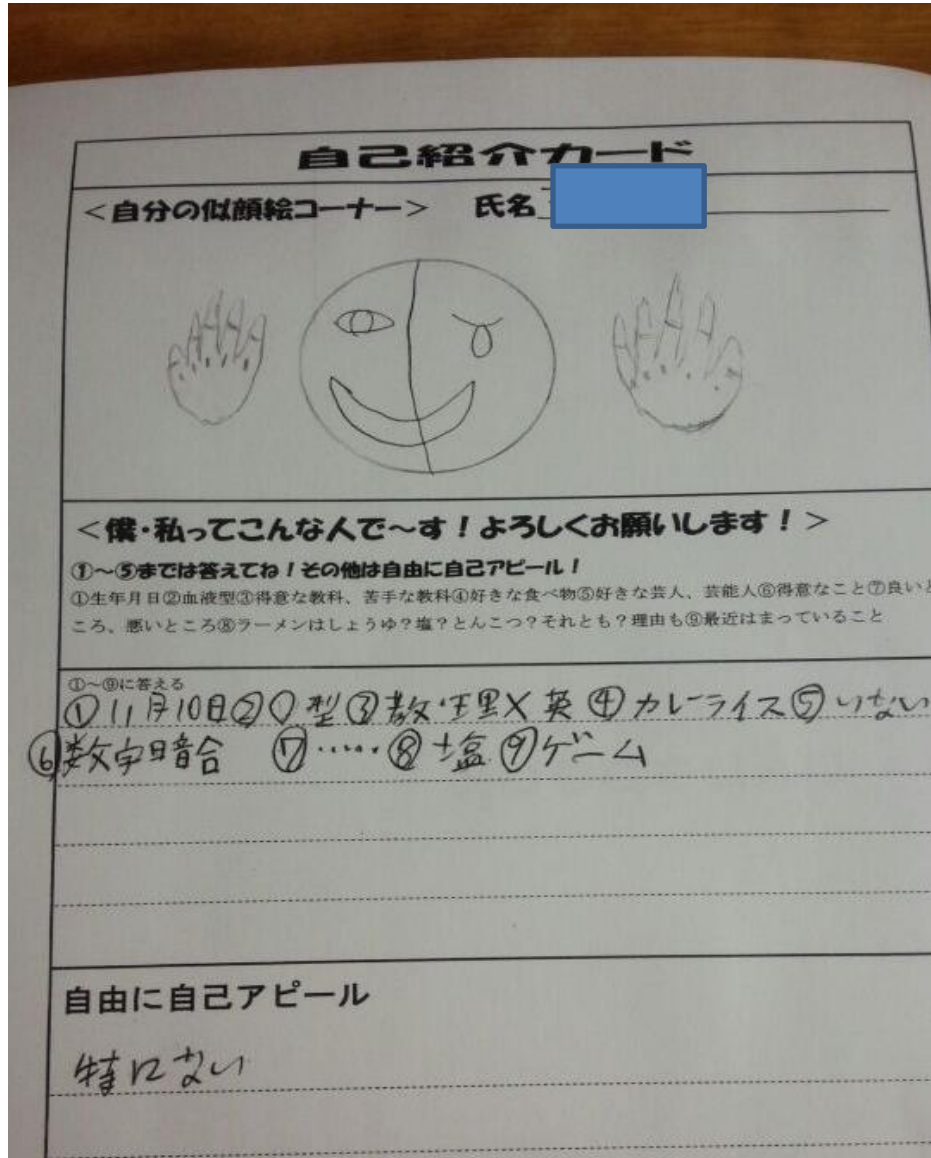 自己紹介カード
＜自分の似顔絵コーナー＞ 氏名
＜僕・私ってこんな人で～す！よろしくお願いします！＞
①～⑤までは答えてね！その他は自由に自己アピール！
①生年月日②血液型③得意な教科、苦手な教科④好きな食べ物⑤好きな芸人、芸能人⑥得意なこと⑦良いと
ころ、悪いところ⑧ラーメンはしょうゆ？塩？とんこつ？それとも？理由も⑨最近はまっていること
①～⑨に答える
①11月10日②O型③数・理×英④カレーライス⑤いない
⑥数字 ⑦……⑧塩⑨ゲーム
自由に自己アピール
特にない